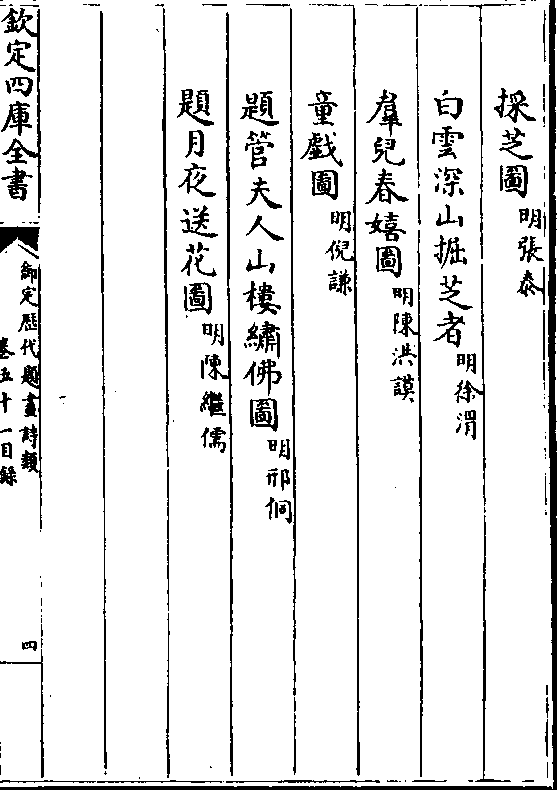 採芝圖 明張泰
白雲深山掘芝者 明徐渭
羣兒春嬉圖 明陳洪謨
童戲圖 明倪謙
題管夫人山樓繡佛圖 明邢侗
題月夜送花圖 明陳繼儒
欽定四庫全書
御定歷代題畫詩類
卷五十一目錄
四